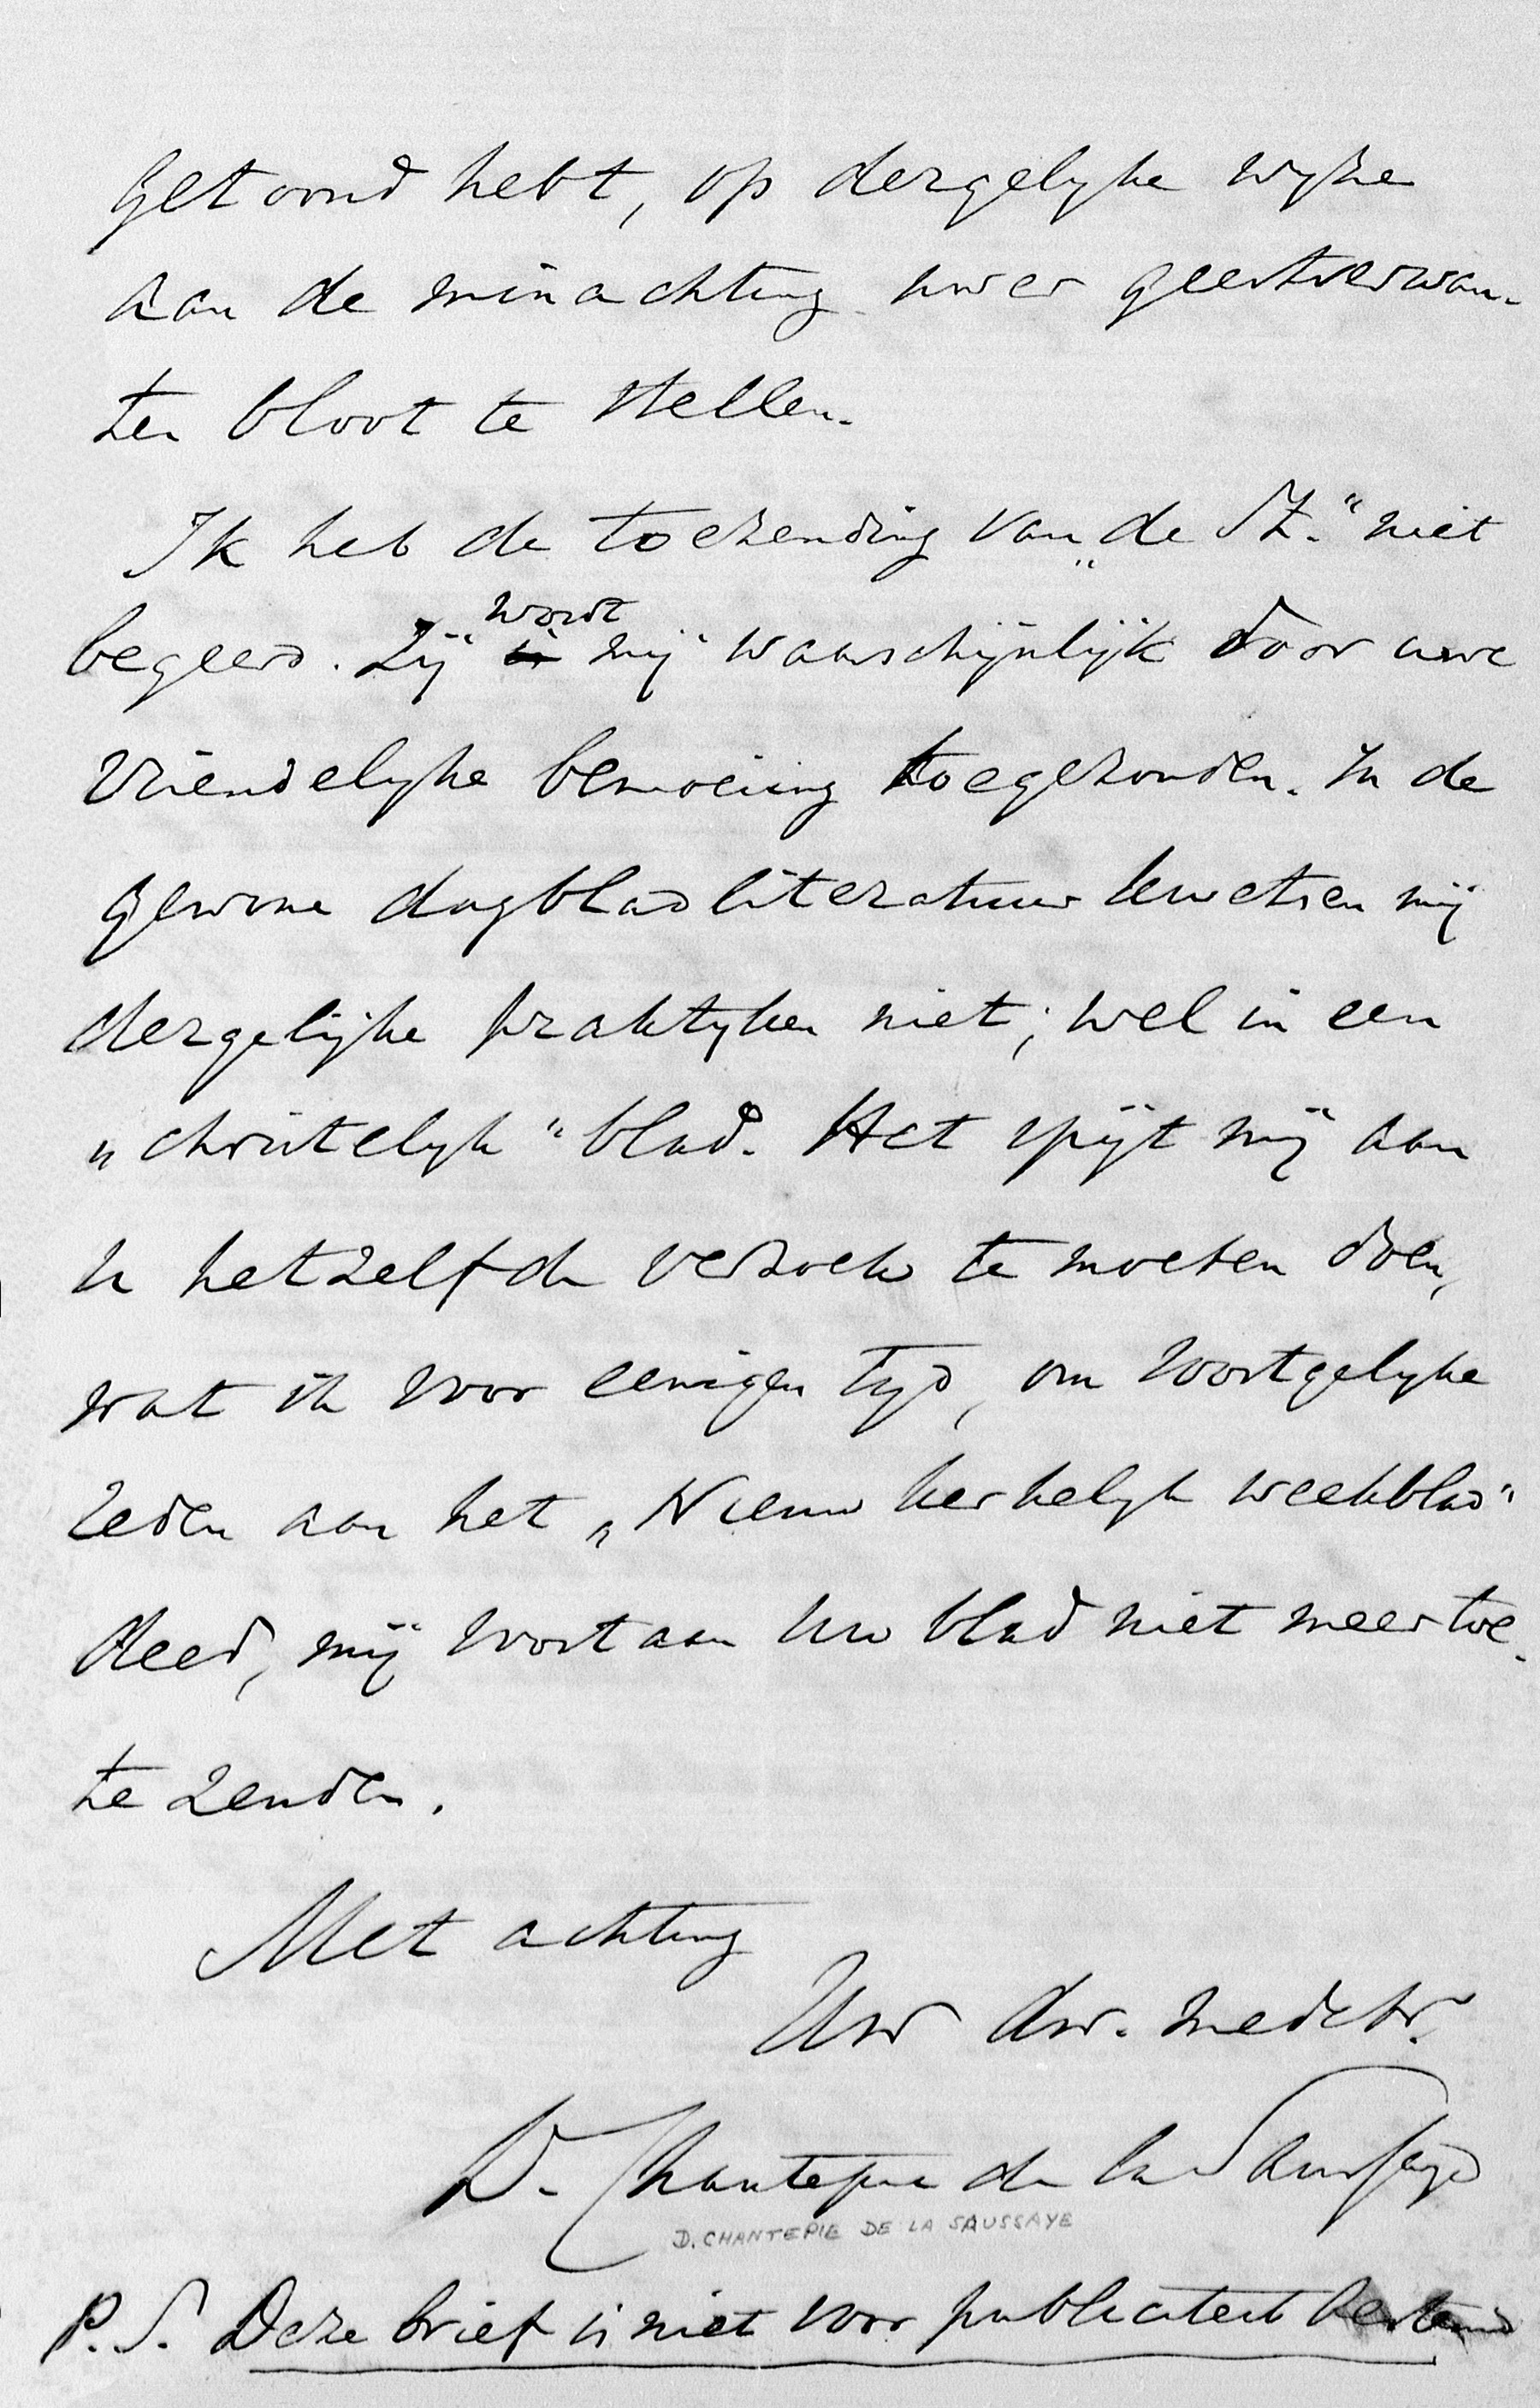 getoond hebt, op dergelyke wyze
aan de minachting uwer geestverwan-
ten bloot te stellen.
Ik heb de toezending van „de St." niet
begeerd. Zij wordt mij waarschijnlijk door uwe
vriendelyke bemoeiing toegezonden. In de
gewone dagbladliteratuur kwetsen mij
dergelijke praktyken niet; wel in een
„christelyk" blad. Het spijt mij aan
U hetzelfde verzoek te moeten doen,
wat ik voor eenigen tyd, om soortgelyke
reden aan het „Nieuw kerkelyk weekblad"
deed, mij voortaan uw blad niet meer toe-
te zenden.
Met achting
Uw dw. medebr.
D. Chantepie de la Saussaye
D. CHANTEPIE DE LA SAUSSAYE
P.S. Deze brief is niet voor publiciteit bestemd